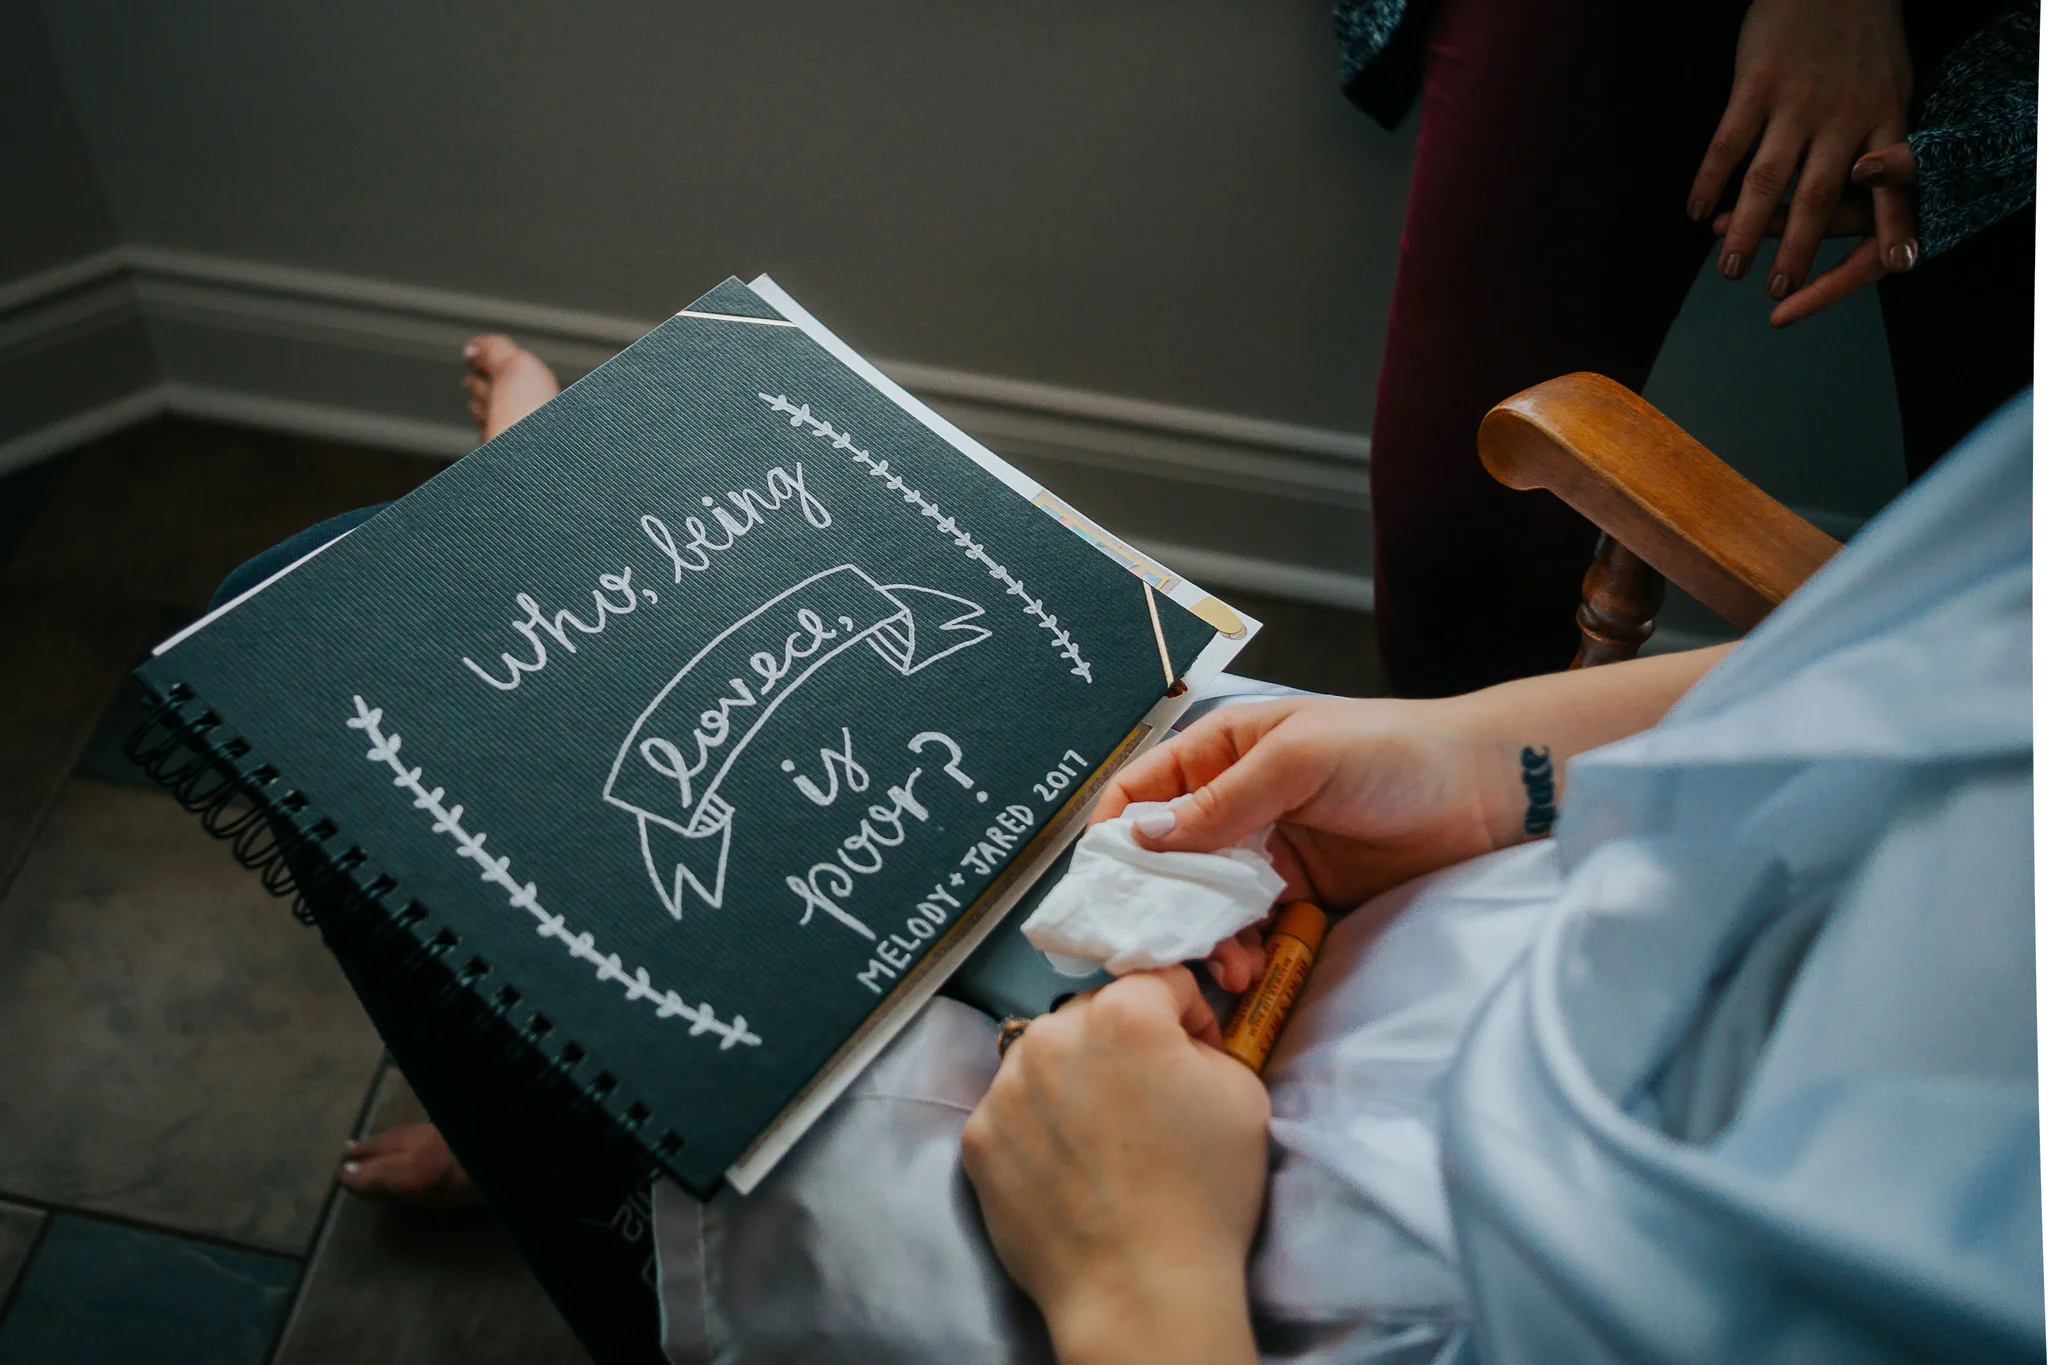 Who, being
loved,
is
poor?
MELODY + JARED 2017